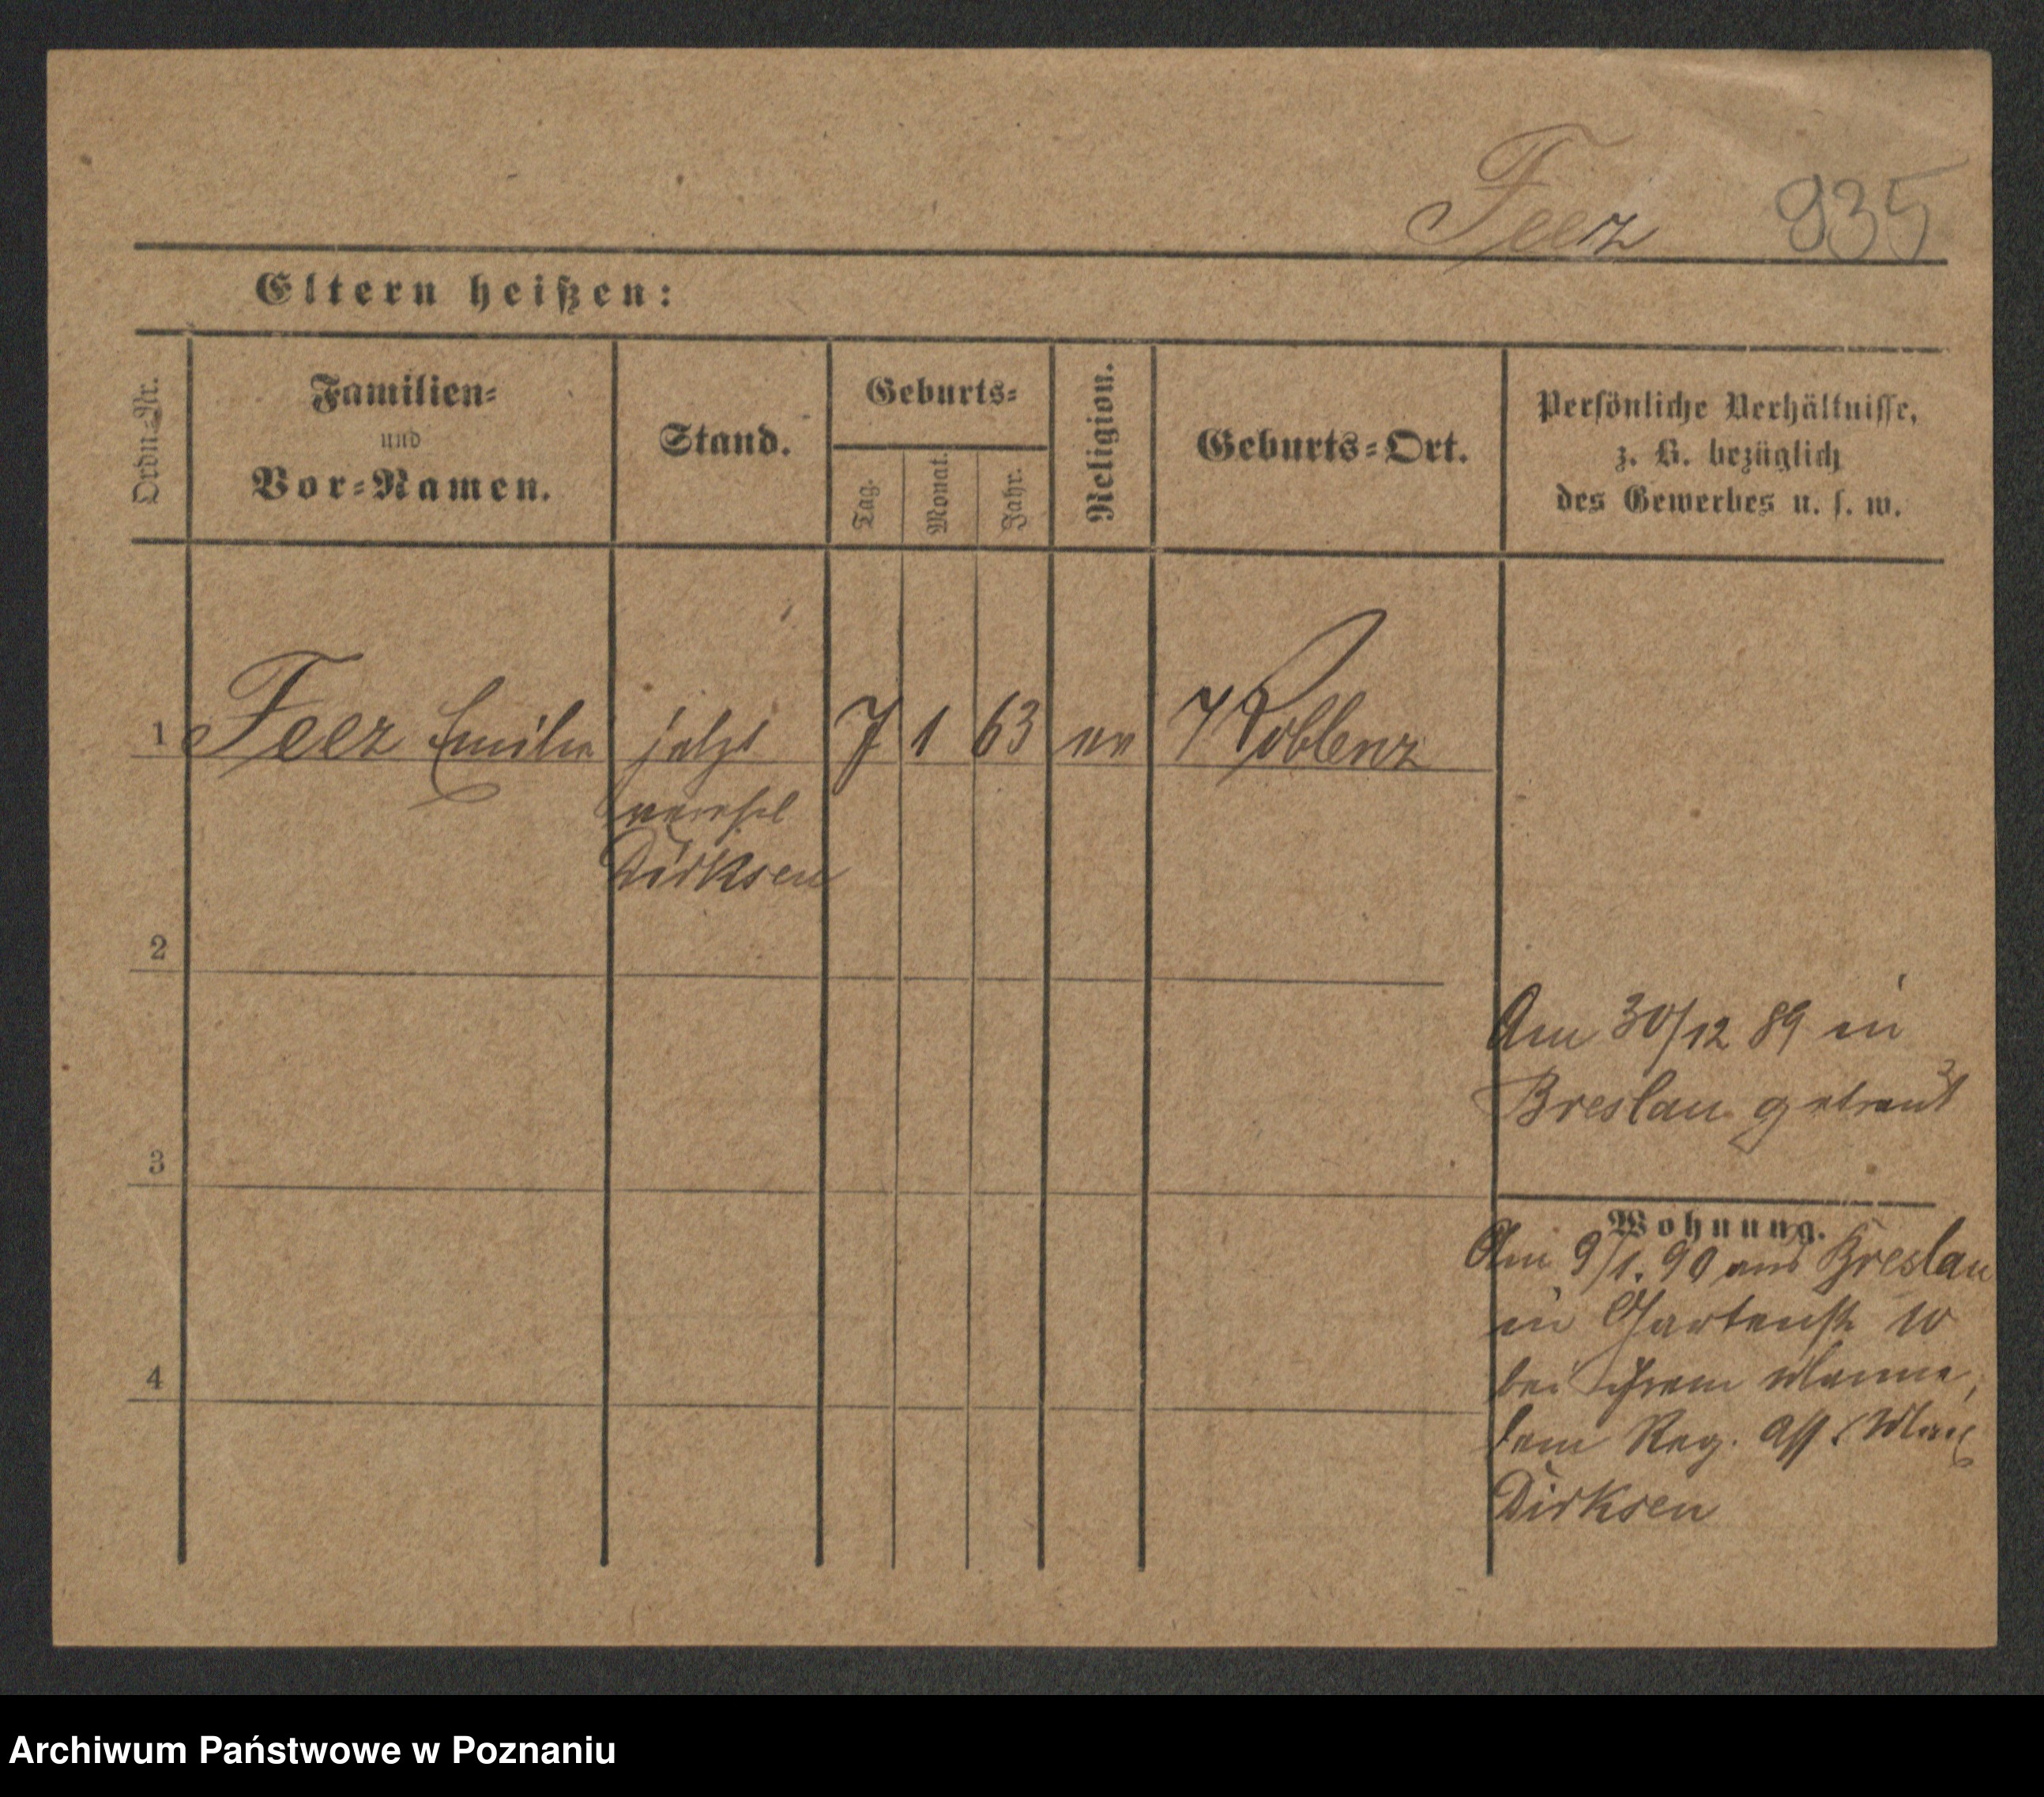 Feez 935
Eltern heißen:
Ordn.-Nr.
Familien-
und
Vor-Namen.
Stand.
Geburts-
Tag.
Monat.
Jahr.
Religion.
Geburts-Ort.
Persönliche Verhältnisse,
z. B. bezüglich
des Gewerbes u. s. w.
1 Feez Emilie jetzt 7 1 63 ev Koblenz
verehel
Dirksen
2
Am 30/12 89 in
Breslau getraut
3
Wohnung.
Am 9/1. 90 aus Breslau
in Gartenstr 10
4
bei ihrem Manne,
dem Reg. Ass. Max
Dirksen
Archiwum Państwowe w Poznaniu